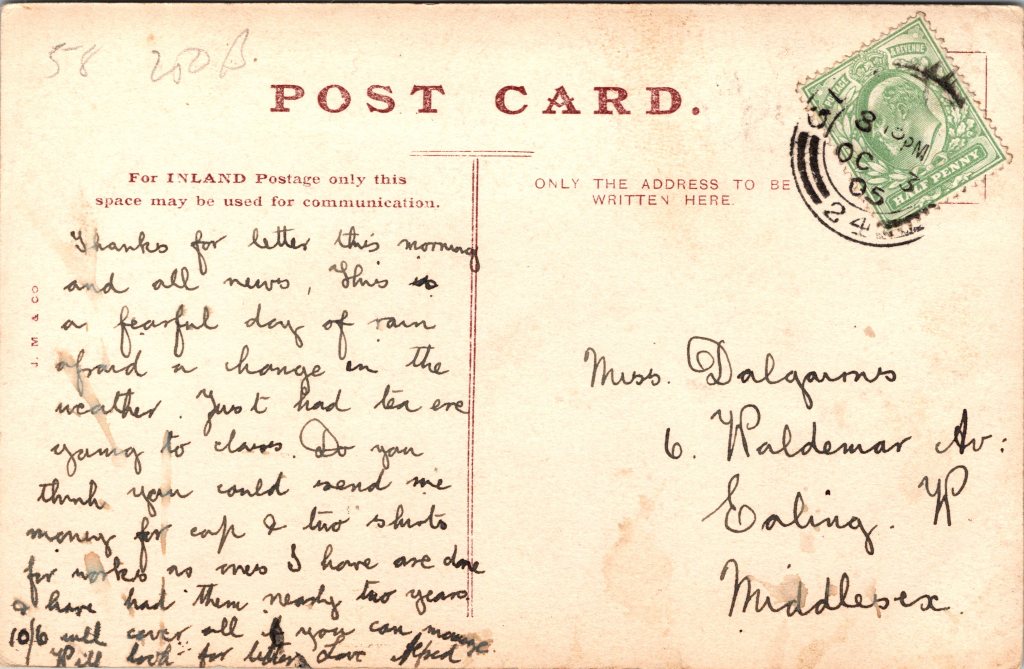 58 200B.
POST CARD.
For INLAND Postage only this
space may be used for communication.
ONLY THE ADDRESS TO BE
WRITTEN HERE.
& REVENUE
HALF PENNY
8 15PM
OC 3
05
24
J. M & CO
Thanks for letter this morning
and all news, This is
a fearful day of rain
afraid a change in the
weather. Just had tea ere
going to class. Do you
think you could send me
money for cap & two shirts
for works as ones I have are done
& have had them nearly two years.
10/6 will cover all if you can manage.
Will look for letter, Love Alfred
Miss. Dalgairns
6. Waldemar Av:
Ealing. W
Middlesex.